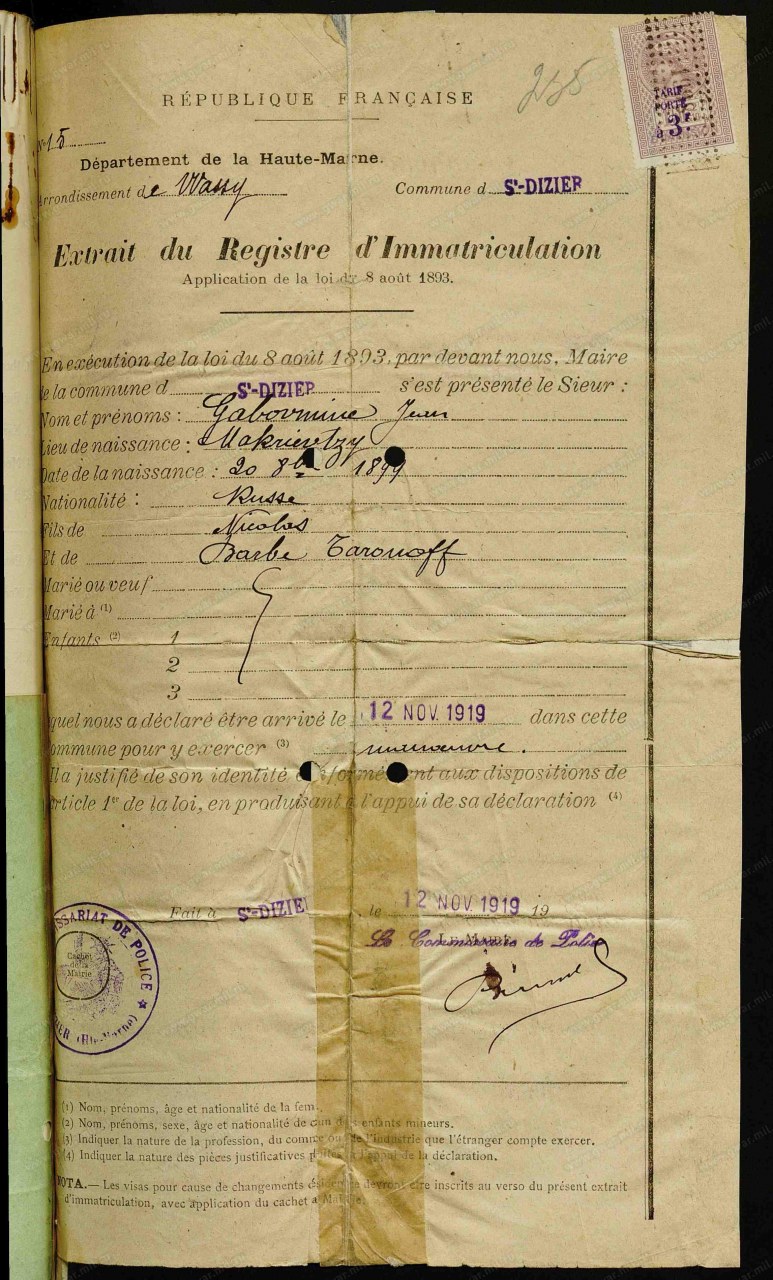 235
RÉPUBLIQUE FRANÇAISE
TARIF
PORTÉ
à 3F
N° 15
Département de la Haute-Marne.
Arrondissement de Wassy Commune d ST-DIZIER
Extrait du Registre d'Immatriculation
Application de la loi du 8 août 1893.
En exécution de la loi du 8 août 1893, par devant nous, Maire
de la commune d ST-DIZIER s'est présenté le Sieur :
Nom et prénoms : Gabovmine Jean
Lieu de naissance : Makrieretzy
Date de la naissance : 20 8bre 1899
Nationalité : Russe
Fils de Nicolas
Et de Barbe Taronoff
Marié ou veuf
Marié à (1)
Enfants (2) 1
2
3
quel nous a déclaré être arrivé le 12 NOV. 1919 dans cette
commune pour y exercer (3) manœuvre.
Il a justifié de son identité conformément aux dispositions de
article 1er de la loi, en produisant à l'appui de sa déclaration (4)
Fait à ST-DIZIE le 12 NOV 1919 19
LE MAIRE
Le Commissaire de Police
SSARIAT DE POLICE ★
Cachet
de la
Mairie
IER (Hte-Marne)
(1) Nom, prénoms, âge et nationalité de la fem
(2) Nom, prénoms, sexe, âge et nationalité de chacun des enfants mineurs.
(3) Indiquer la nature de la profession, du commerce ou de l'industrie que l'étranger compte exercer.
(4) Indiquer la nature des pièces justificatives à l'appui de la déclaration.
NOTA.— Les visas pour cause de changements de devront être inscrits au verso du présent extrait
d'immatriculation, avec application du cachet Mairie.